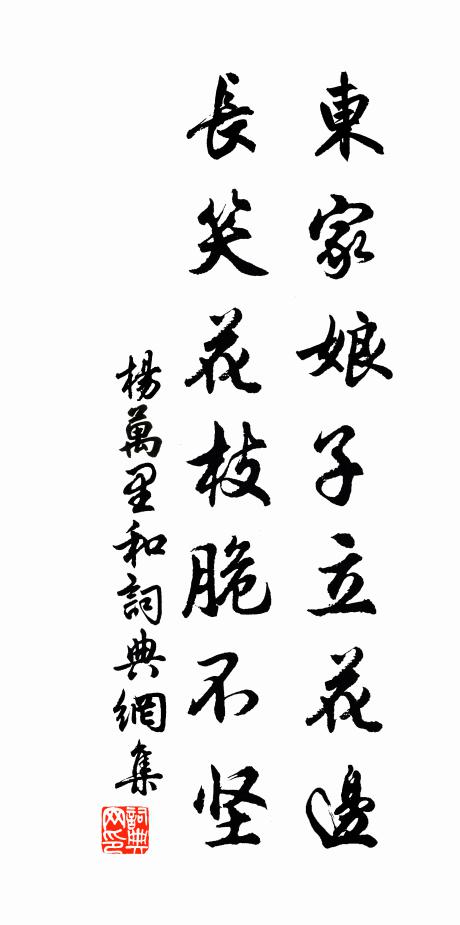 東家娘子立花邊
長笑花枝脆不坚
楊萬里和詞典網集
詞典
网印